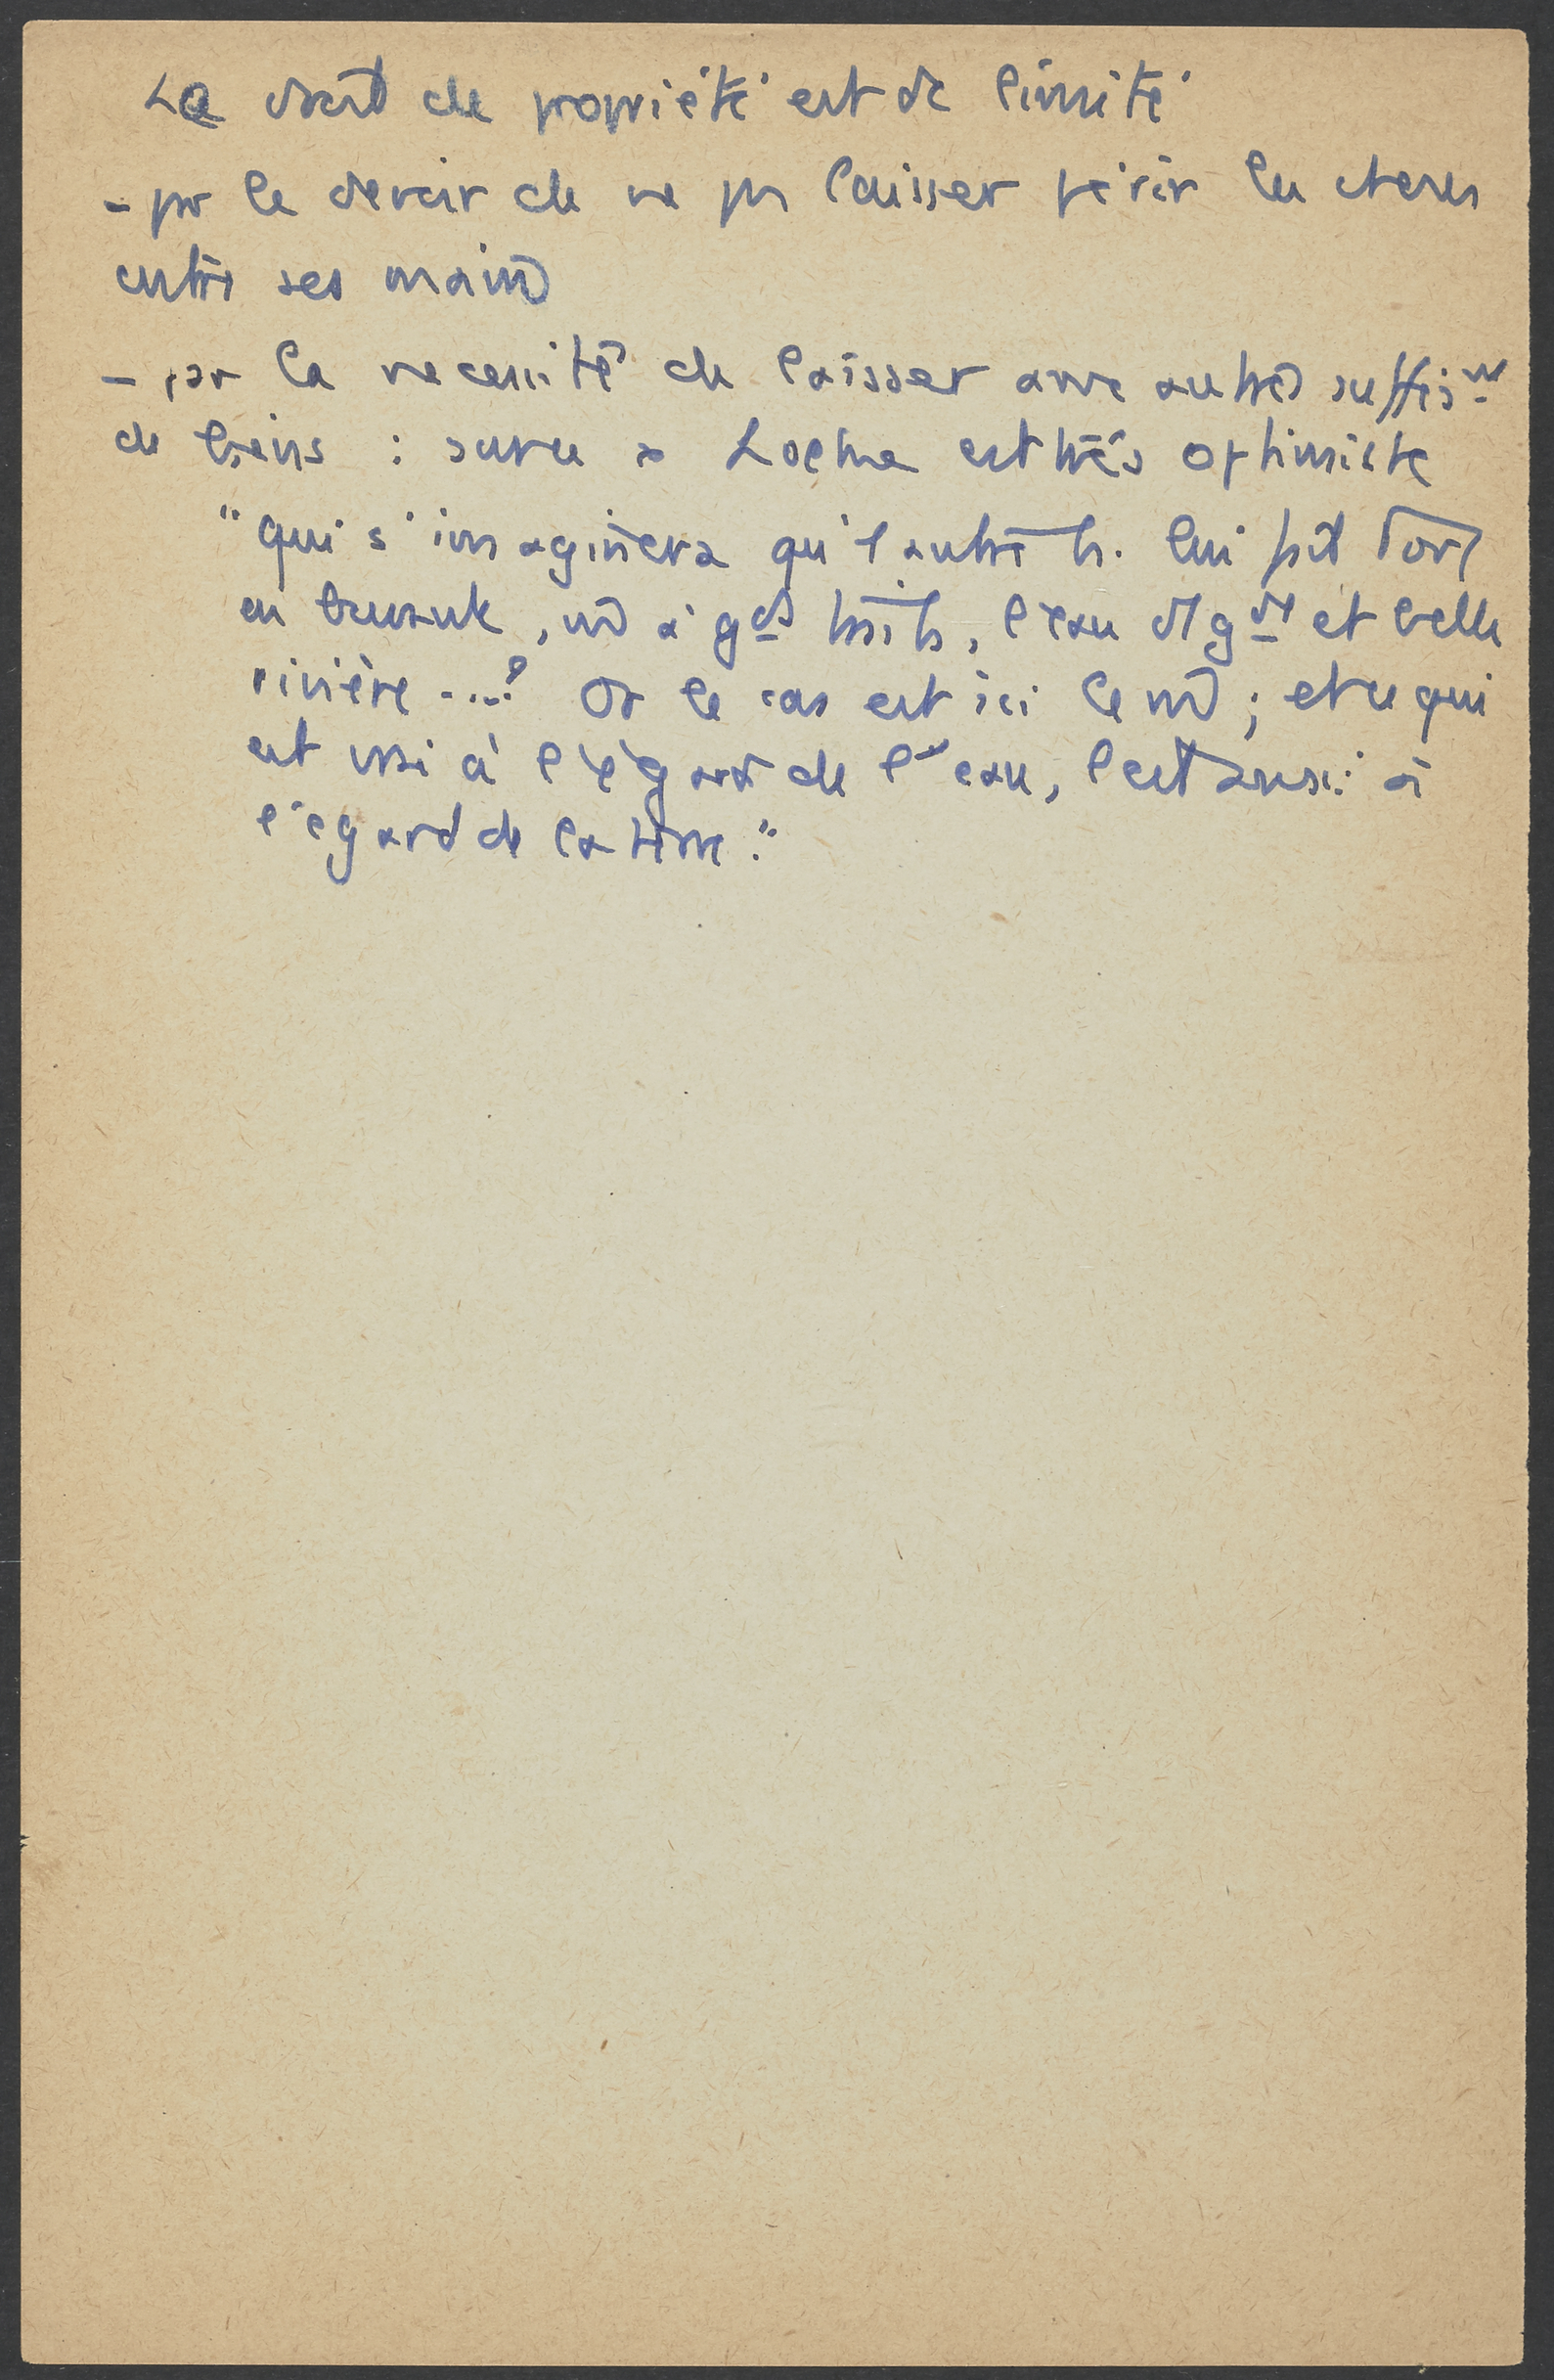 Le droit de propriété est dc limité
- par le devoir de ne pas laisser périr les choses
entre ses mains
- par la nécessité de laisser aux autres suffismt
de biens : sur ce pt Locke est très optimiste
"qui s'imaginera qu'1 autre h. lui fait tort
en buvant, m̂ à gds traits, l'eau d'1 gde et belle
rivière ...? Or le cas est ici le m̂ ; et ce qui
est vrai à l'égard de l'eau, l'est aussi à
l'égard de la terre."